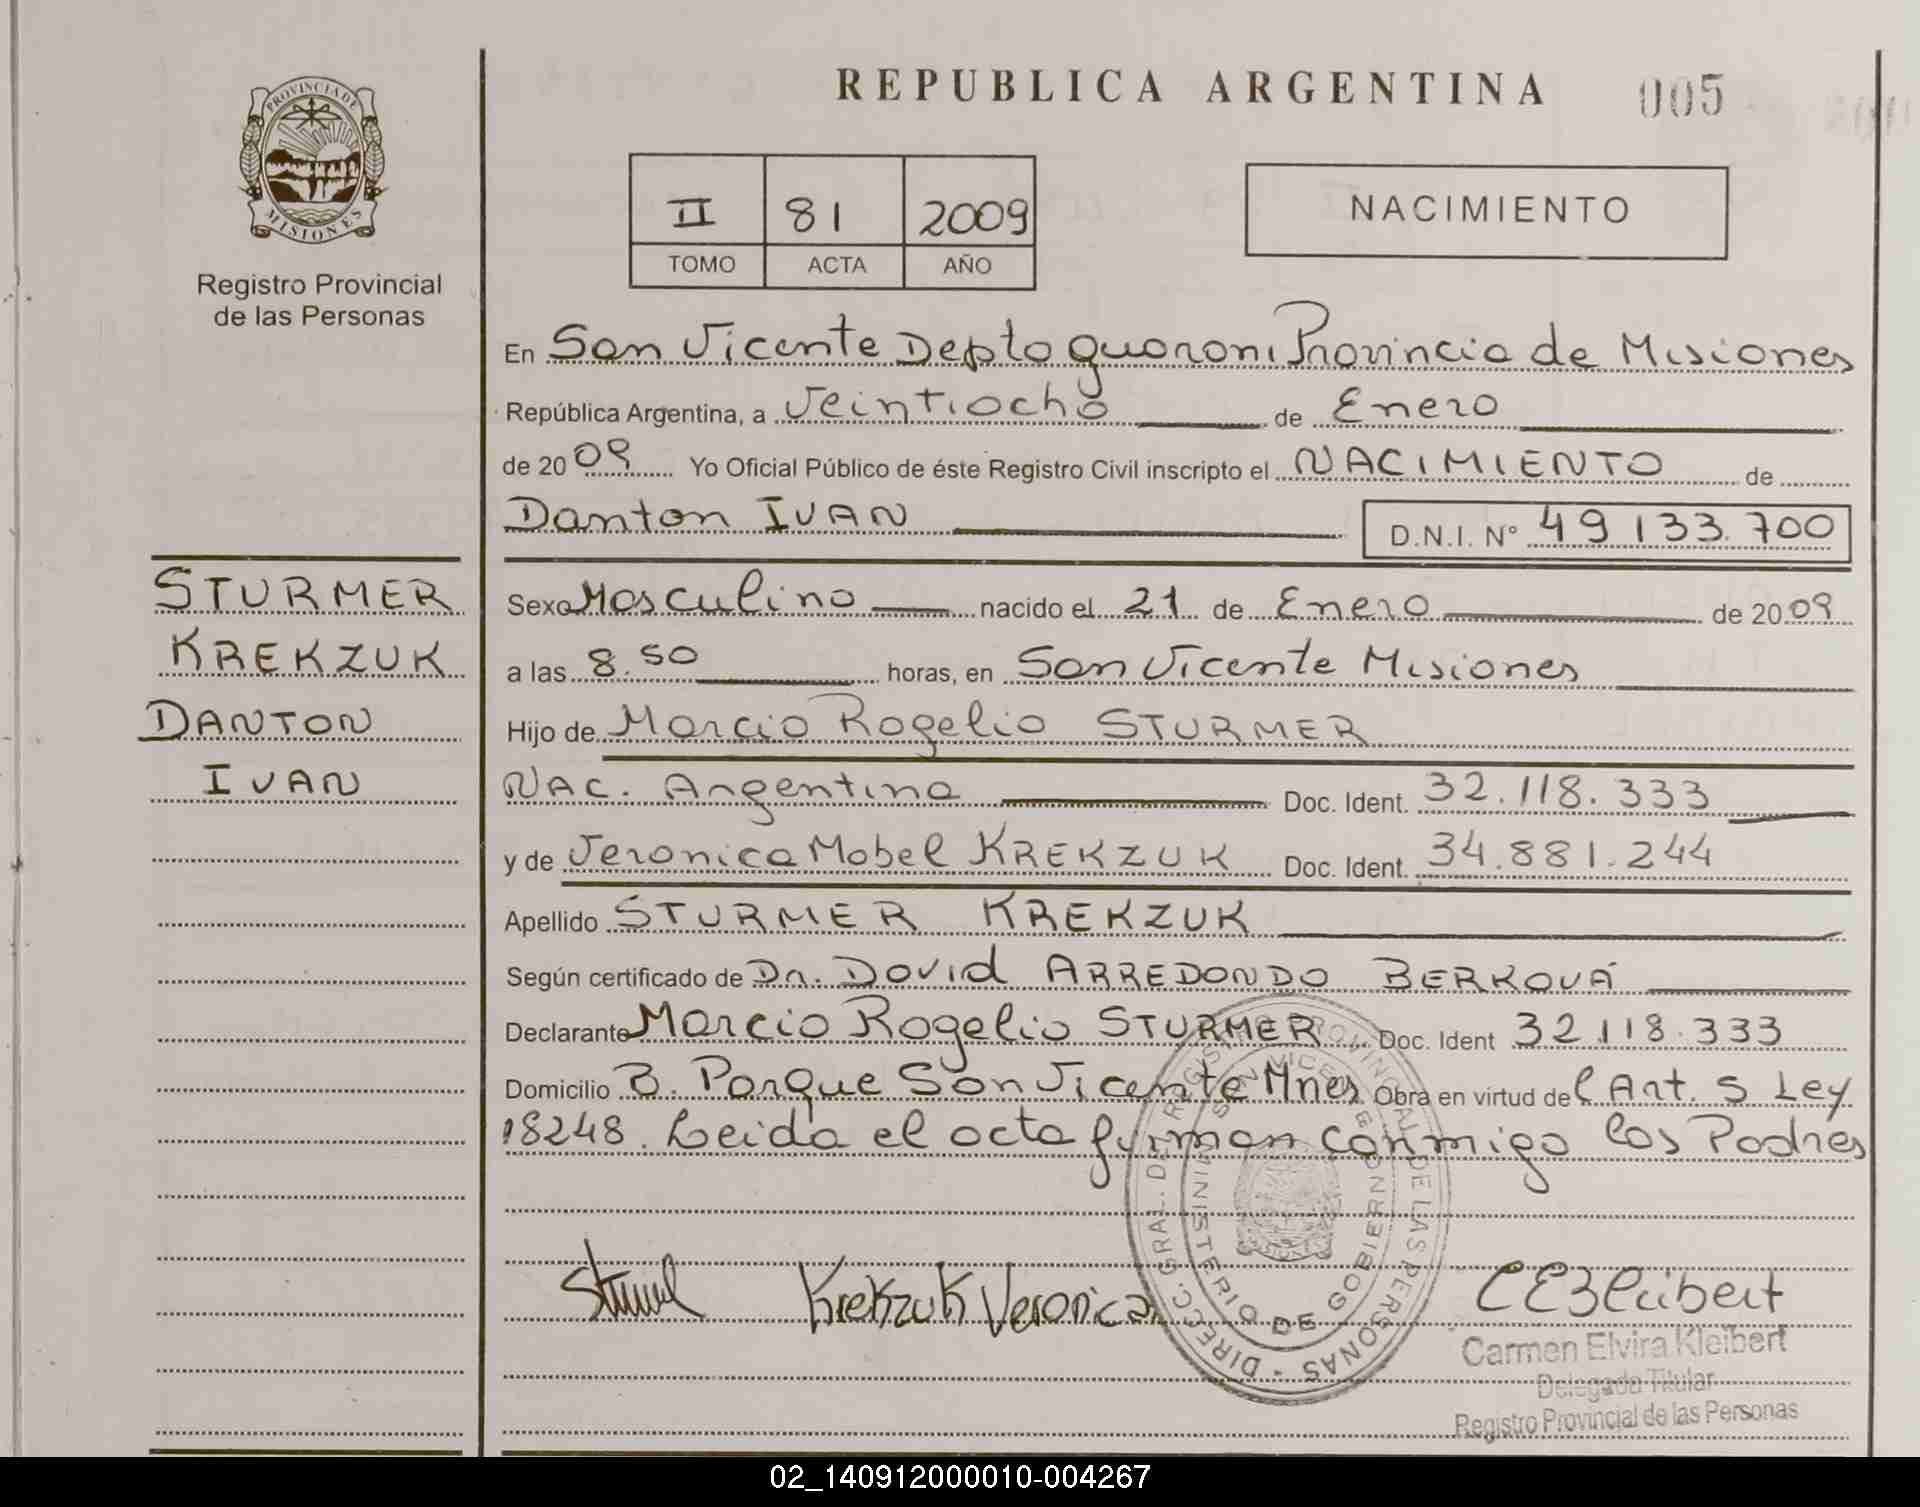 REPUBLICA ARGENTINA
005
PROVINCIA DE
MISIONES
Registro Provincial
de las Personas
II 81 2009
TOMO ACTA AÑO
NACIMIENTO
En San Vicente Depto guarani Provincia de Misiones
República Argentina, a Veintiocho de Enero
de 2009 Yo Oficial Público de éste Registro Civil inscripto el NACIMIENTO de
Danton IVAN D.N.I. Nº 49 133.700
STURMER
KREKZUK
DANTON
IVAN
Sexo Masculino nacido el 21 de Enero de 2009
a las 8.50 horas, en San Vicente Misiones
Hijo de Marcio Rogelio STURMER
NAC. Argentina Doc. Ident. 32.118.333
y de Veronica Mabel KREKZUK Doc. Ident. 34.881.244
Apellido STURMER KREKZUK
Según certificado de Dr. David ARREDONDO BERKOVÁ
Declarante Marcio Rogelio STURMER Doc. Ident 32.118.333
Domicilio B. Parque San Vicente Mnes Obra en virtud del Art. 5 Ley
18248. Leida el acta firman conmigo los Padres
DIRECC. GRAL. DEL REGISTRO PROVINCIAL DE LAS PERSONAS -
MINISTERIO DE GOBIERNO
SAN VICENTE
MISIONES
Krekzuk Veronica
CEKleibert
Carmen Elvira Kleibert
Delegada Titular
Registro Provincial de las Personas
02_140912000010-004267